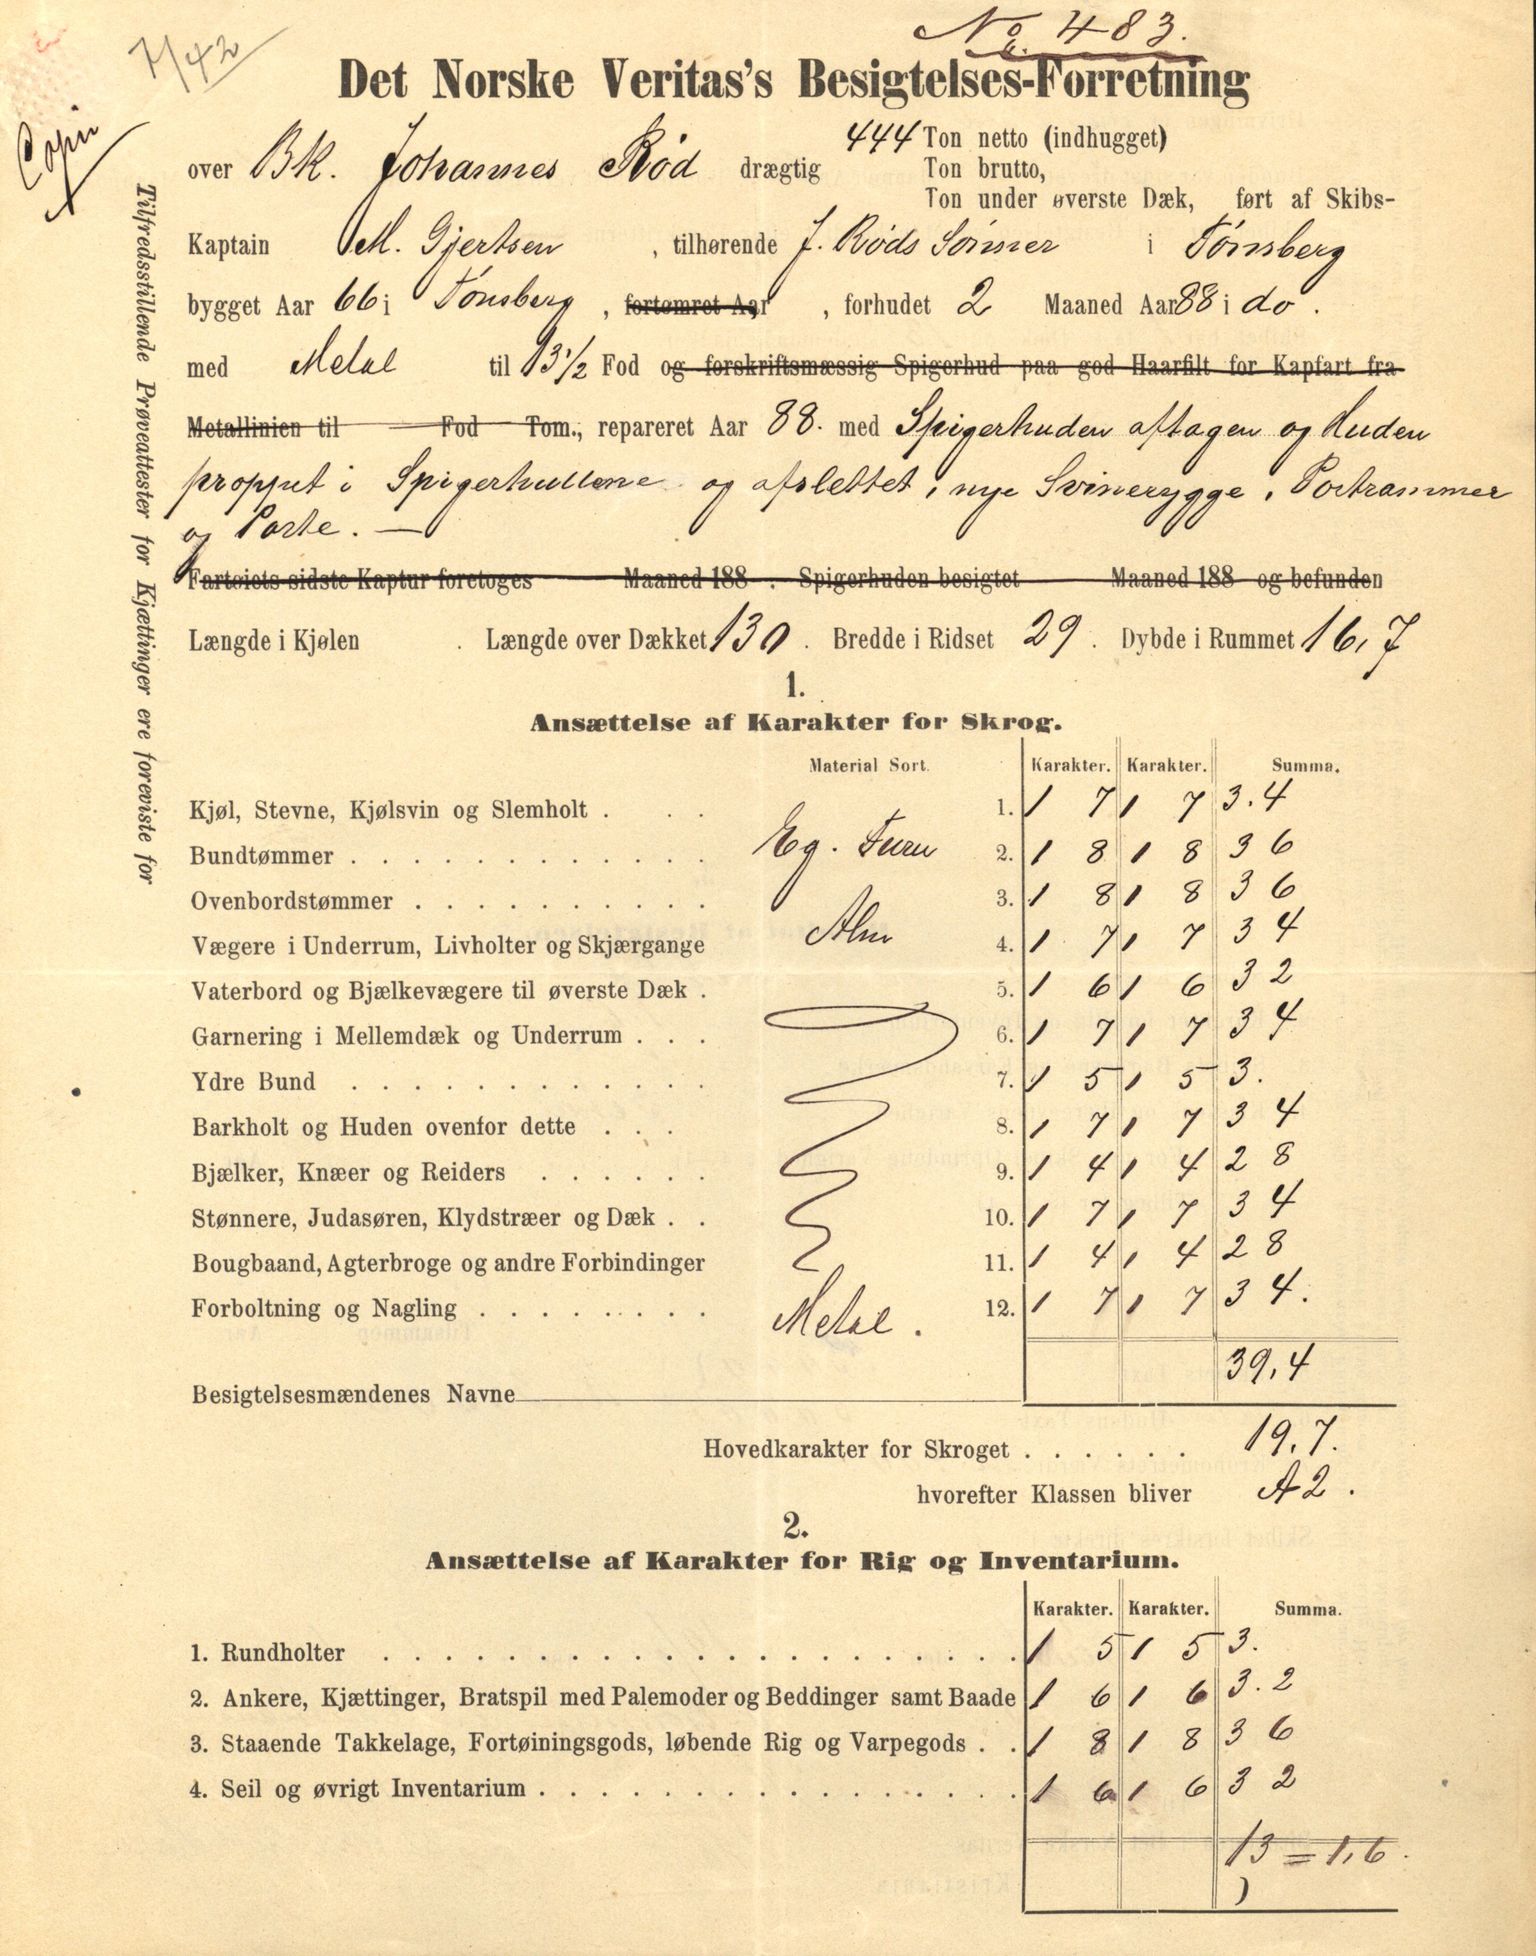 No. 483.
7/42
Copi
Det Norske Veritas's Besigtelses-Forretning
over Bk. Johannes Rød drægtig 444 Ton netto (indhugget)
Ton brutto,
Ton under øverste Dæk, ført af Skibs-
Kaptain M. Gjertsen , tilhørende J. Røds Sønner i Tønsberg
bygget Aar 66 i Tønsberg , fortømret Aar , forhudet 2 Maaned Aar 88 i do .
med Metal til 13 1/2 Fod og forskriftsmæssig Spigerhud paa god Haarfilt for Kapfart fra
Metallinien til Fod Tom., repareret Aar 88. med Spigerhuden aftagen og Huden
proppet i Spigerhullene og afslettet, nye Svinerygge, Portrammer
og Porte. —
Fartøiets sidste Kaptur foretoges Maaned 188 . Spigerhuden besigtet Maaned 188 og befunden
Længde i Kjølen . Længde over Dækket 130 . Bredde i Ridset 29 . Dybde i Rummet 16,7
Tilfredsstillende Prøveattester for Kjættinger ere foreviste for
1.
Ansættelse af Karakter for Skrog.
Material Sort. Karakter. Karakter. Summa.
Kjøl, Stevne, Kjølsvin og Slemholt . . . 1. 1 7 1 7 3.4
Bundtømmer . . . . . . . . . . . . Eg. Furu 2. 1 8 1 8 3 6
Ovenbordstømmer . . . . . . . . . . 3. 1 8 1 8 3 6
Vægere i Underrum, Livholter og Skjærgange Alm 4. 1 7 1 7 3 4
Vaterbord og Bjælkevægere til øverste Dæk . 5. 1 6 1 6 3 2
Garnering i Mellemdæk og Underrum . . . 6. 1 7 1 7 3 4
Ydre Bund . . . . . . . . . . . . 7. 1 5 1 5 3.
Barkholt og Huden ovenfor dette . . . 8. 1 7 1 7 3 4
Bjælker, Knæer og Reiders . . . . . . 9. 1 4 1 4 2 8
Stønnere, Judasøren, Klydstræer og Dæk . . 10. 1 7 1 7 3 4
Bougbaand, Agterbroge og andre Forbindinger 11. 1 4 1 4 2 8
Forboltning og Nagling . . . . . . . . Metal . 12. 1 7 1 7 3 4.
39,4
Besigtelsesmændenes Navne
Hovedkarakter for Skroget . . . . . . 19,7.
hvorefter Klassen bliver A2 .
2.
Ansættelse af Karakter for Rig og Inventarium.
Karakter. Karakter. Summa.
1. Rundholter . . . . . . . . . . . . 1 5 1 5 3.
2. Ankere, Kjættinger, Bratspil med Palemoder og Beddinger samt Baade 1 6 1 6 3.2
3. Staaende Takkelage, Fortøiningsgods, løbende Rig og Varpegods . . 1 8 1 8 3 6
4. Seil og øvrigt Inventarium . . . . . . . . . . . . 1 6 1 6 3 2
13 = 1,6.